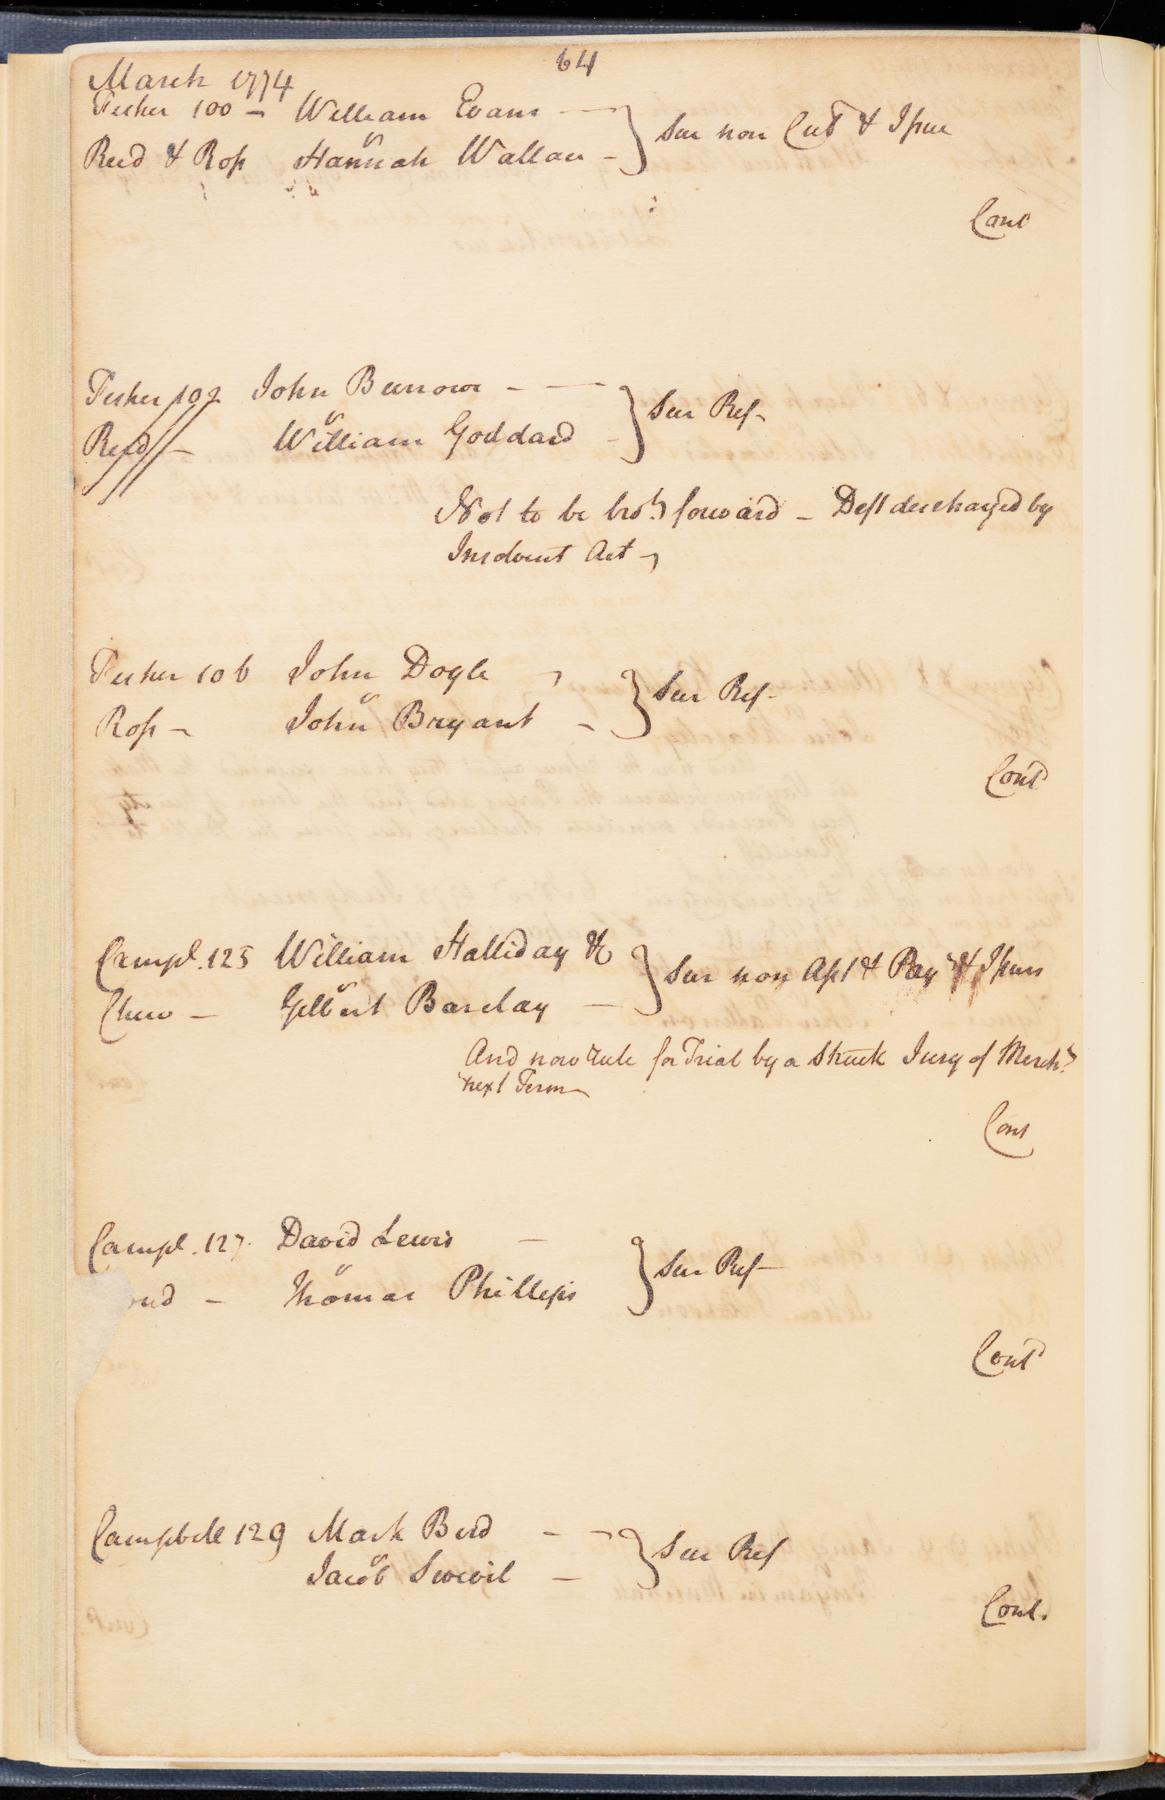 64
March 1774
Fisher 100 – William Evans –
v
Reed & Ross Hannah Wallace –
Sur non Cul & Issue
Cont
Fisher 102 John Burrows – –
v
Reed – William Goddard –
Sur Ref –
Not to be brot forward – Deft discharged by
Insolvent Act –
Fisher 106 John Doyle
v
Ross – John Bryant –
Sur Ref –
Contd
Campl. 125 William Halliday &c
v
Chew – Gilbert Barclay –
Sur non Apt & Pay & Issues
And now rule for Trial by a Struck Jury of Mercht
next Term
Cont
Campl. 127. David Lewis –
v
– Thomas Phillips
Sur Ref –
Contd
Campbell 129 Mark Bird – –
v
Jacob –
Sur Ref
Cont.